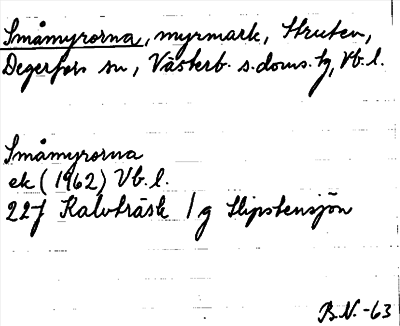 Småmyrorna, myrmark, Struten,
Degerfors sn, Västerb. s.doms. tg, Vb. l.
Småmyrorna
ek (1962) Vb. l.
22J Kalvträsk 1g Slipstensjön
B.N.-63